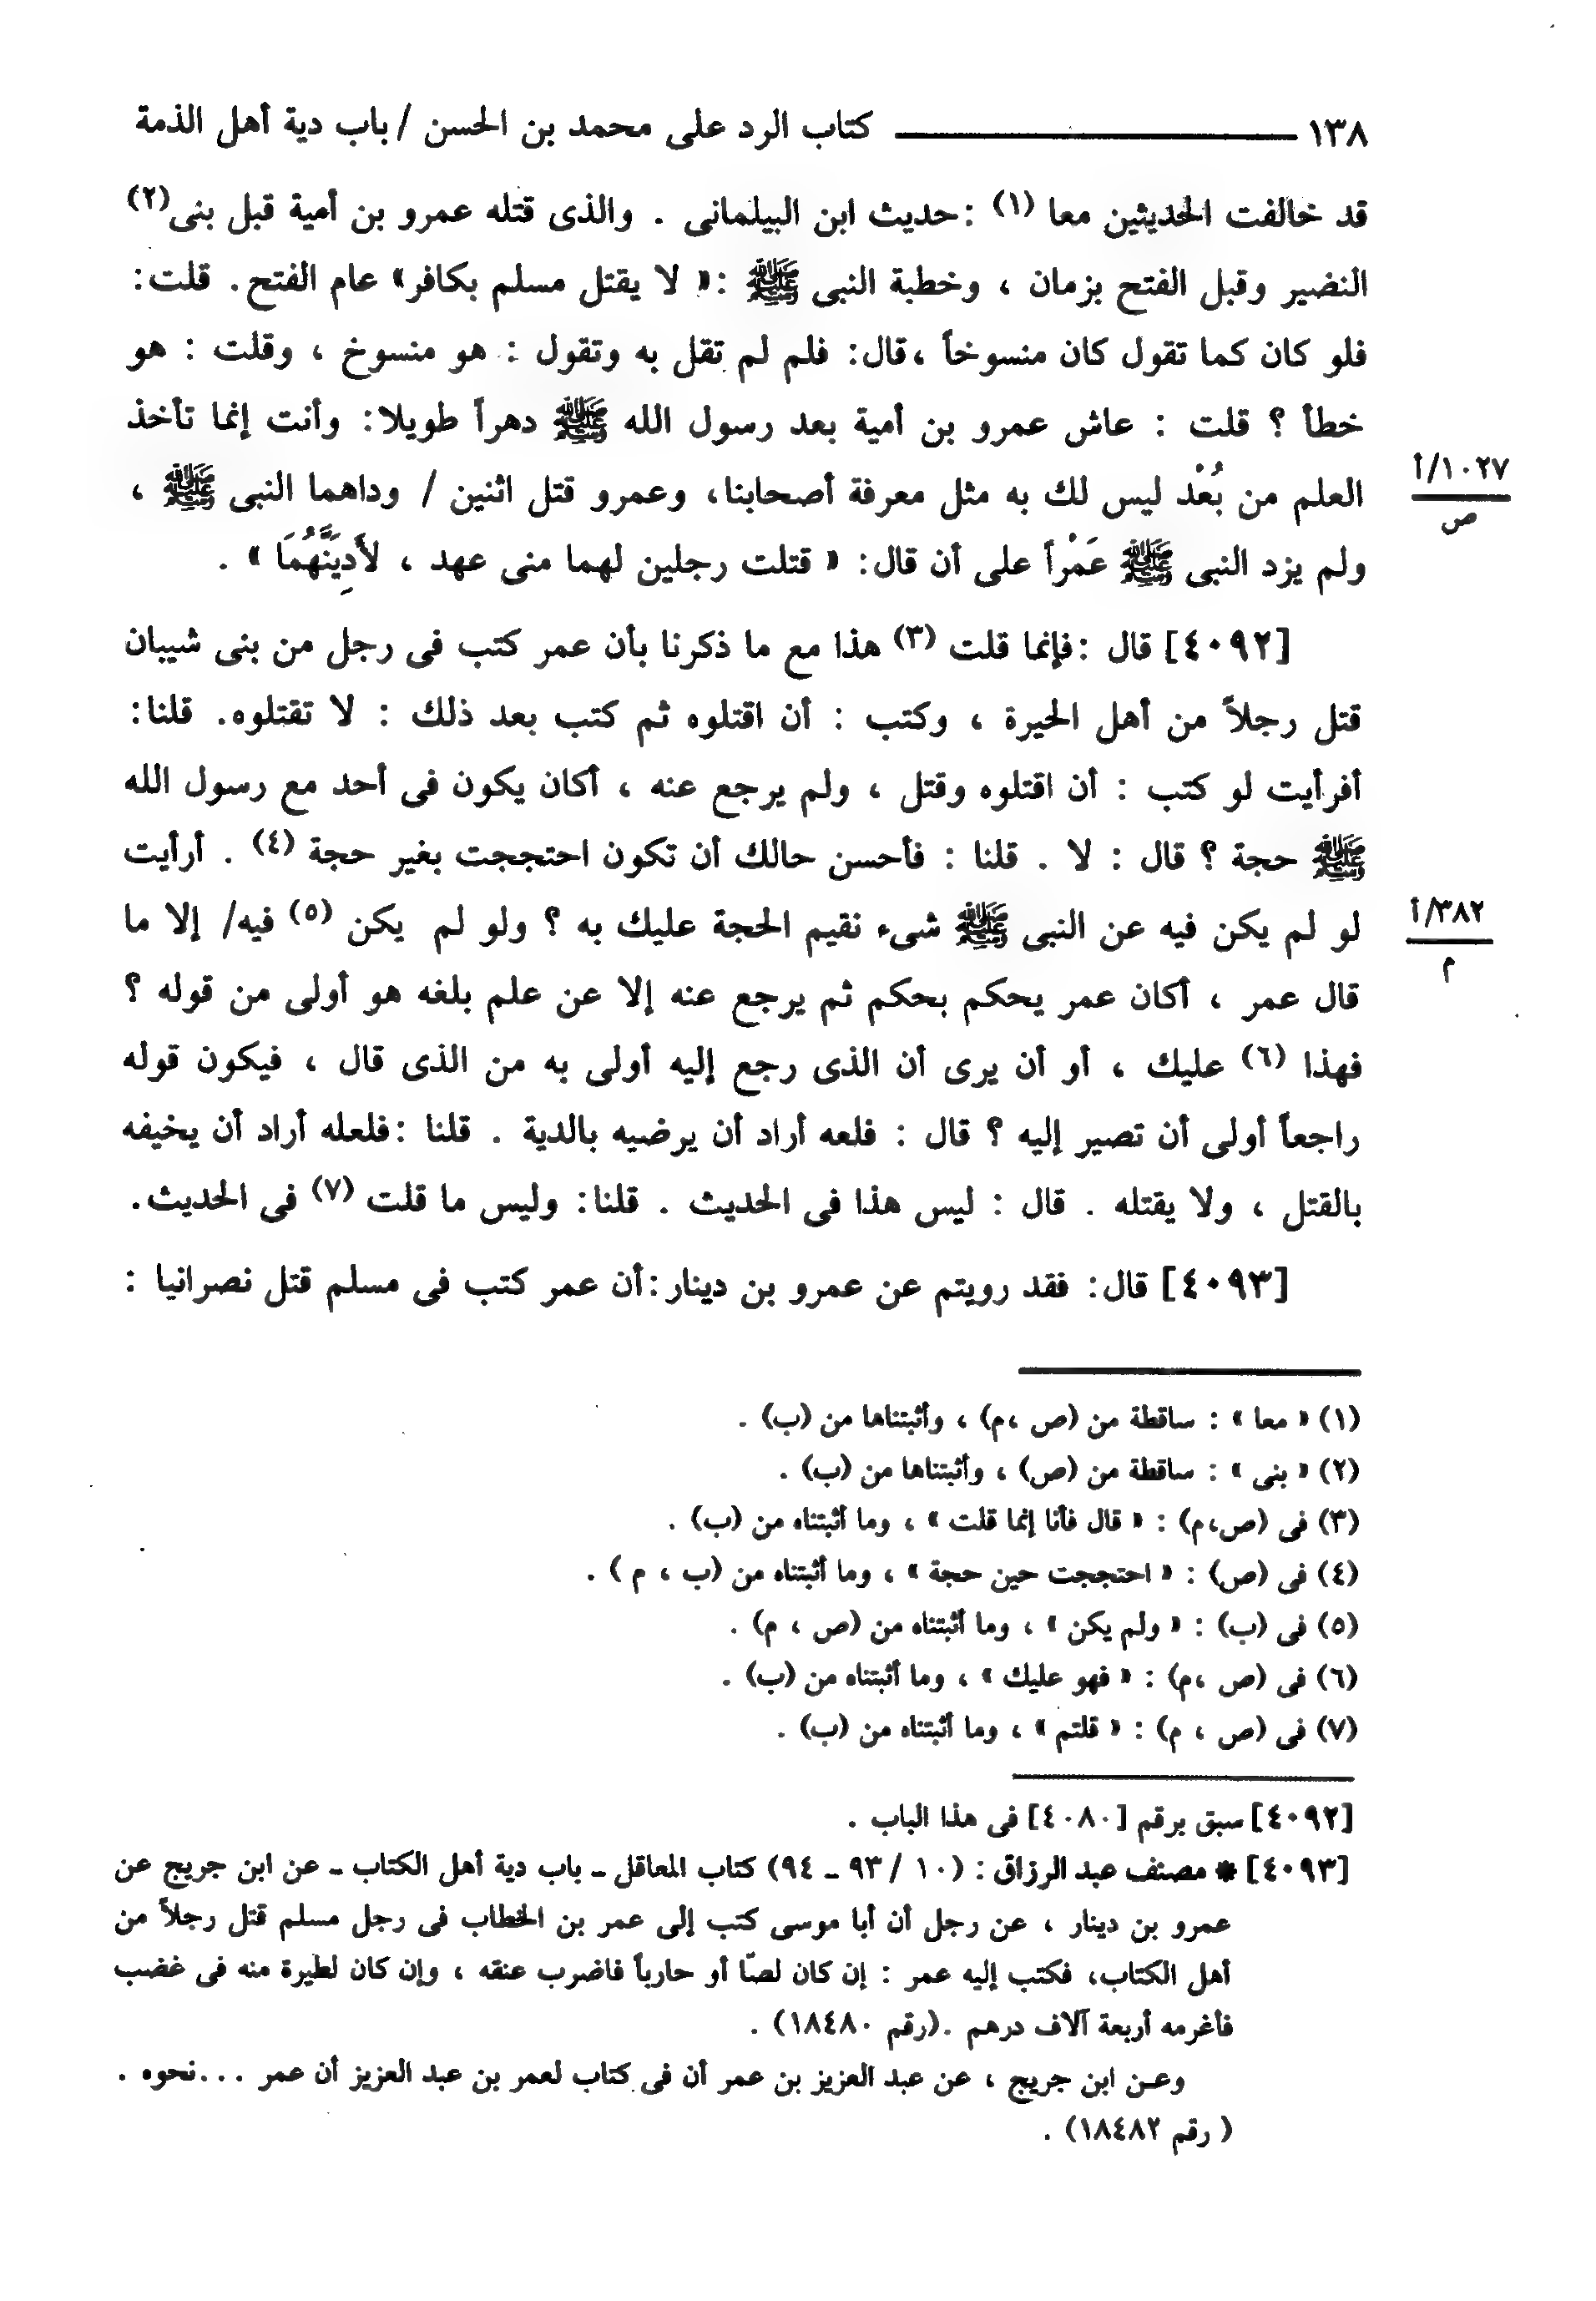 ١٣٨ ــــــــــــــــ كتاب الرد على محمد بن الحسن / باب دية أهل الذمة
قد خالفت الحديثين معا (١) :حديث ابن البيلمانى . والذى قتله عمرو بن أمية قبل بنى(٢)
النضير وقبل الفتح بزمان ، وخطبة النبى ﷺ :« لا يقتل مسلم بكافر» عام الفتح. قلت:
فلو كان كما تقول كان منسوخاً ،قال: فلم لم تقل به وتقول : هو منسوخ ، وقلت : هو
خطأ ؟ قلت : عاش عمرو بن أمية بعد رسول الله ﷺ دهراً طويلا: وأنت إنما تأخذ
العلم من بُعْد ليس لك به مثل معرفة أصحابنا، وعمرو قتل اثنين / وداهما النبى ﷺ ،
١٠٢٧/أ
ص
ولم يزد النبى ﷺ عَمْراً على أن قال: « قتلت رجلين لهما منى عهد ، لأَدِيَنَّهُمَا » .
[٤٠٩٢] قال :فإنما قلت (٣) هذا مع ما ذكرنا بأن عمر كتب فى رجل من بنى شيبان
قتل رجلاً من أهل الحيرة ، وكتب : أن اقتلوه ثم كتب بعد ذلك : لا تقتلوه. قلنا:
أفرأيت لو كتب : أن اقتلوه وقتل ، ولم يرجع عنه ، أكان يكون فى أحد مع رسول الله
ﷺ حجة ؟ قال : لا . قلنا : فأحسن حالك أن تكون احتججت بغير حجة (٤) . أرأيت
لو لم يكن فيه عن النبى ﷺ شىء نقيم الحجة عليك به ؟ ولو لم يكن (٥) فيه/ إلا ما
٣٨٢/أ
م
قال عمر ، أكان عمر يحكم بحكم ثم يرجع عنه إلا عن علم بلغه هو أولى من قوله ؟
فهذا (٦) عليك ، أو أن يرى أن الذى رجع إليه أولى به من الذى قال ، فيكون قوله
راجعاً أولى أن تصير إليه ؟ قال : فلعه أراد أن يرضيه بالدية . قلنا :فلعله أراد أن يخيفه
بالقتل ، ولا يقتله . قال : ليس هذا فى الحديث . قلنا: وليس ما قلت (٧) فى الحديث.
[٤٠٩٣] قال: فقد رويتم عن عمرو بن دينار:أن عمر كتب فى مسلم قتل نصرانيا :
(١) « معا » : ساقطة من (ص ،م) ، وأثبتناها من (ب) .
(٢) « بنى » : ساقطة من (ص) ، وأثبتناها من (ب) .
(٣) فى (ص،م) : « قال فأنا إنما قلت » ، وما أثبتناه من (ب) .
(٤) فى (ص) : « احتججت حين حجة » ، وما أثبتناه من (ب ، م ) .
(٥) فى (ب) : « ولم يكن » ، وما أثبتناه من (ص ، م) .
(٦) فى (ص ،م) : « فهو عليك » ، وما أثبتناه من (ب) .
(٧) فى (ص ، م) : « قلتم » ، وما أثبتناه من (ب) .
[٤٠٩٢] سبق برقم [٤٠٨٠] فى هذا الباب .
[٤٠٩٣] * مصنف عبد الرزاق : (١٠ / ٩٣ ـ ٩٤) كتاب المعاقل ـ باب دية أهل الكتاب ـ عن ابن جريج عن
عمرو بن دينار ، عن رجل أن أبا موسى كتب إلى عمر بن الخطاب فى رجل مسلم قتل رجلاً من
أهل الكتاب، فكتب إليه عمر : إن كان لصّا أو حارباً فاضرب عنقه ، وإن كان لطيرة منه فى غضب
فأغرمه أربعة آلاف درهم .(رقم ١٨٤٨٠) .
وعن ابن جريج ، عن عبد العزيز بن عمر أن فى كتاب لعمر بن عبد العزيز أن عمر ...نحوه .
( رقم ١٨٤٨٢) .